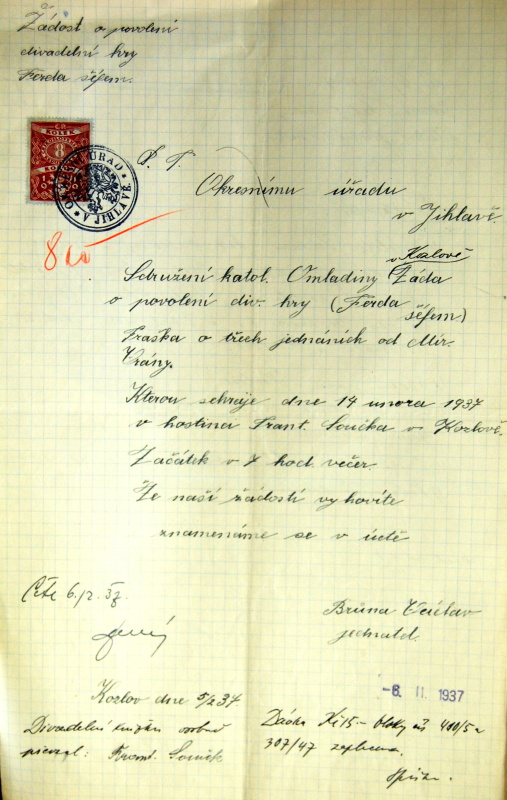 Žádost o povolení
divadelní hry
Ferda šéfem.
KOLEK
8
OKRESNÍ ÚŘAD
V JIHLAVĚ
P. T.
Okresnímu úřadu
v Jihlavě.
8
v Kozlově
Sdružení katol. Omladiny žádá
o povolení div. hry (Ferda
šéfem)
Fraška o třech jednáních od Mir.
Vrány.
Kterou sehraje dne 14 února 1937
v hostina Frant. Součka v Kozlově.
Začátek v 7 hod. večer.
Že naší žádostí vyhovíte
znamenáme se v úctě
6./2. 37
Brůna Václav
jednatel.
Kozlov dne 5/2 37
-6. II. 1937
Divadelní knížku osobně
převzal: Frant. Souček
400/5a
307/47